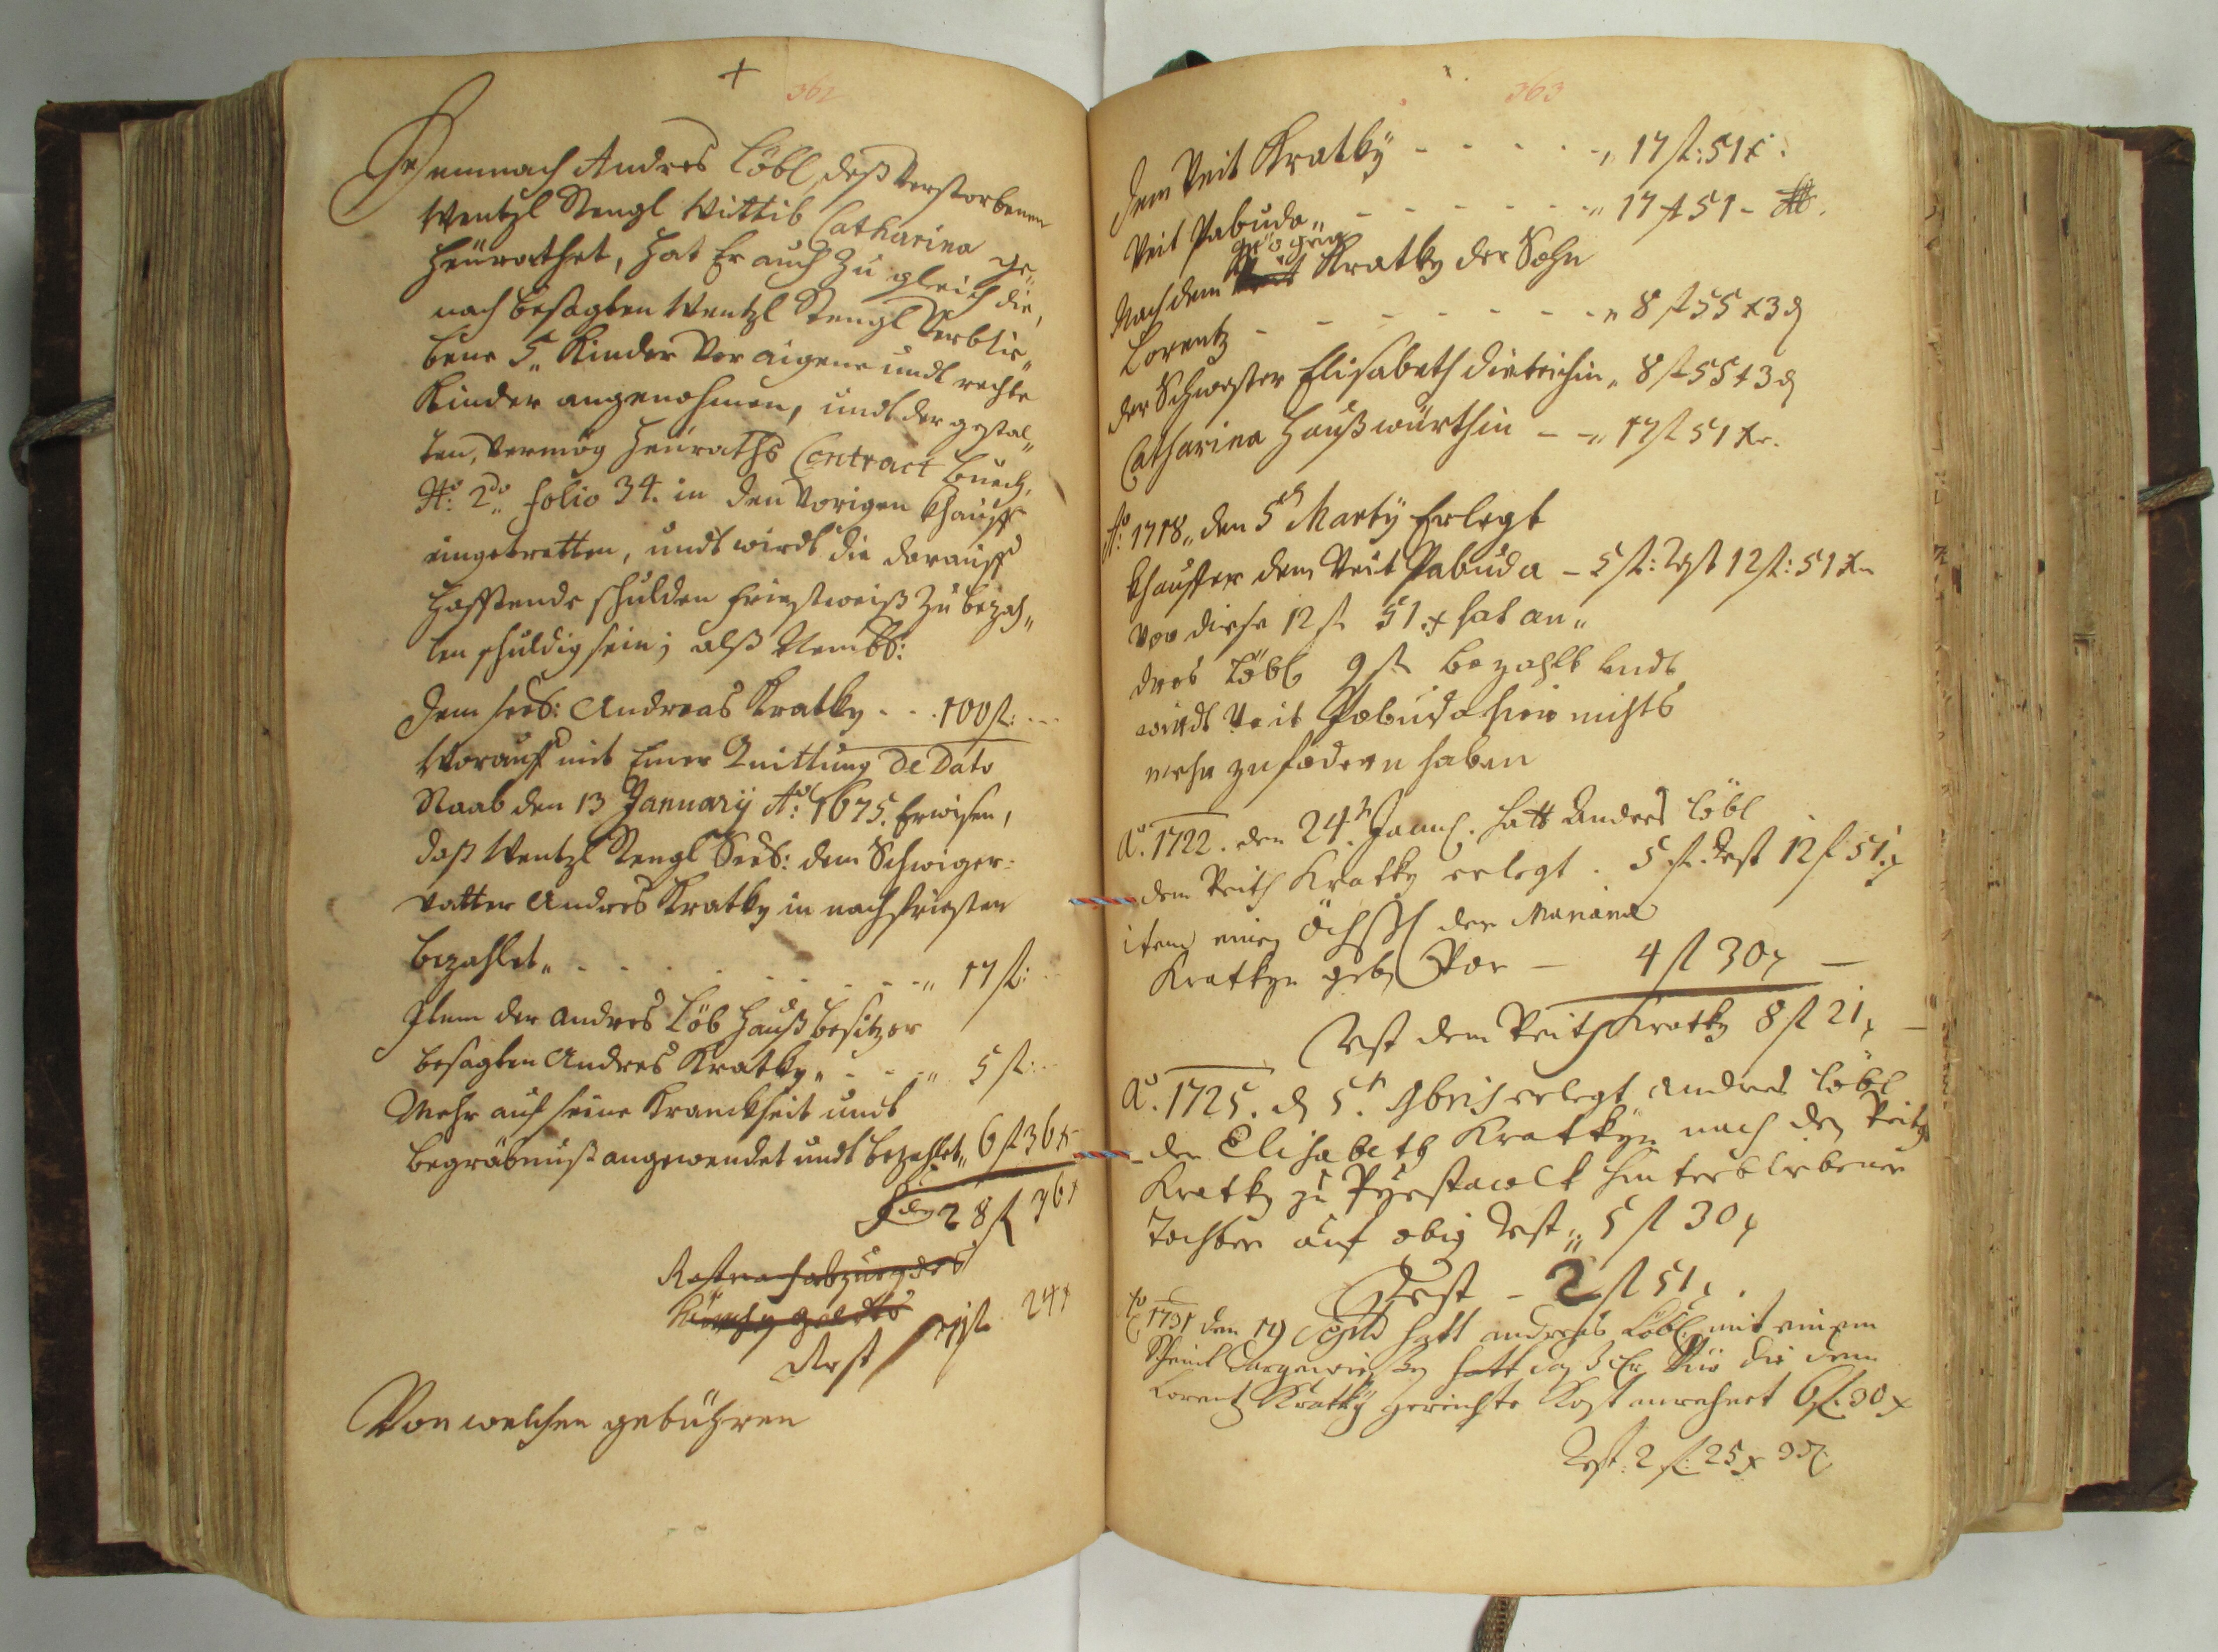 +
362
Demnach Andres Löbl, deß Verstorbenen
Wentzl Stengl Wittib Catharina ge„
heürathet, hat Er auch zu gleich die,
nach besagten Wentzl Stengl Verblie„
bene 5„ Kinder vor aigene undt rechte
Kinder angenohmen, undt der gestal„
ten, Vermög Heüraths Contract Buech,
No: 2do folio 34. in den Vorigen Khauff
eingetretten, undt wirdt die darauff
hafftende schulden fristweiß zu bezah„
len schuldig sein; alß Nembl:
Dem seel: Andreas Kratky - - 100 fl: - -
Worauff mit Einer Quittung De Dato
Staab den 13 January Ao: 1675. Erwisen,
daß Wentzl Stengl Seel: dem Schwiger-
vatter Andres Kratky in nachfristen
bezahlet„ - - - - - - - „ 17 fl:
Item der Andres Löb Haußbesitzer
besagten Andres Kratky„ - - - „ 5 fl: -
Mehr auf seine Kranckheit undt
begräbnuß angewendet undt bezahlet„ 6 fl 36 x
28 fl 36 x
Rest nach abzueg des
Rest 71 fl 24 x
Von welchen gebühren
363
Dem Veit Kratky - - - - -„ 17 fl: 51 x.
Veit Pabuda„ - - - - - -„ 17 fl 51 -
Nach dem Kratky der Sohn
Lorentz - - - - - - -„ 8 fl 55 x 3 d
der Schwester Elisabeth Dietrichin„ 8 fl 55 x 3 d
Catharina Haußwürthin - -„ 17 fl 51 xr.
Ao: 1718„ den 5ten Marty Erlegt
Khauffer dem Veit Pabuda - 5 fl: Rest 12 fl: 51 xr
Vor diese 12 fl 51 x hat an„
dres Löbl 9 fl bezahlt undt
wirdt Veit Pabuda hier nichts
mehr zu fodern haben
A. 1722. den 24t. Janu. hatt Andres Löbl
dem Veith Kratky erlegt . 5 fl. Rest 12 f 51 x
item einen Öchsl der Mariana
Kratkyn geb. Vor - 4 fl 30 x -
Rest dem Veith Kratky 8 fl 21 x -
A. 1725. d 5t. 9bris erlegt Andres Löbl
der Elisabeth Kratkyn nach den Veith
Kratky zu hinterbliebenen
Tochter auf obig Rest„ 5 fl 30 x
Rest - 2 fl 51 x.
Ao 1731 den 19 hatt andreas Löbl mit einem
Schein daß Er Vor die dem
Lorentz Kratky gereichte Kost 6 fl: 30 x
Rest: 2 fl: 25 x 3 d